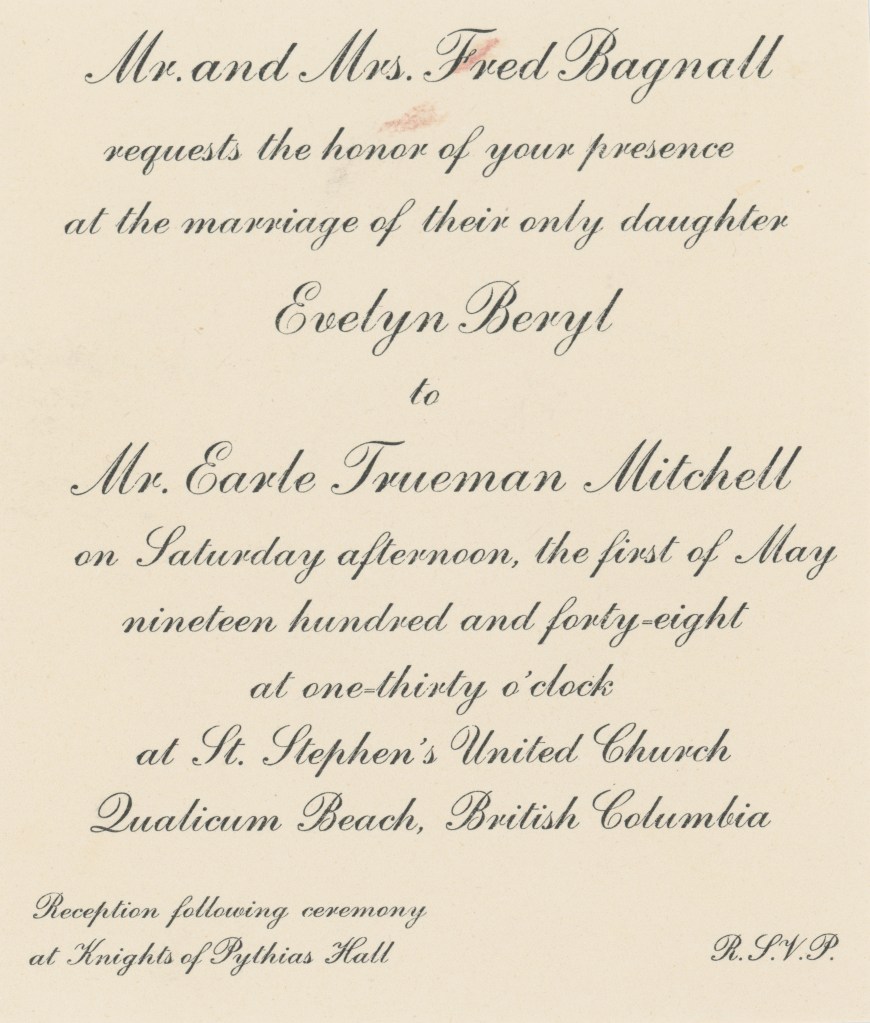 Mr. and Mrs. Fred Bagnall
requests the honor of your presence
at the marriage of their only daughter
Evelyn Beryl
to
Mr. Earle Trueman Mitchell
on Saturday afternoon, the first of May
nineteen hundred and forty-eight
at one-thirty o'clock
at St. Stephen's United Church
Qualicum Beach, British Columbia
Reception following ceremony
at Knights of Pythias Hall
R.S.V.P.